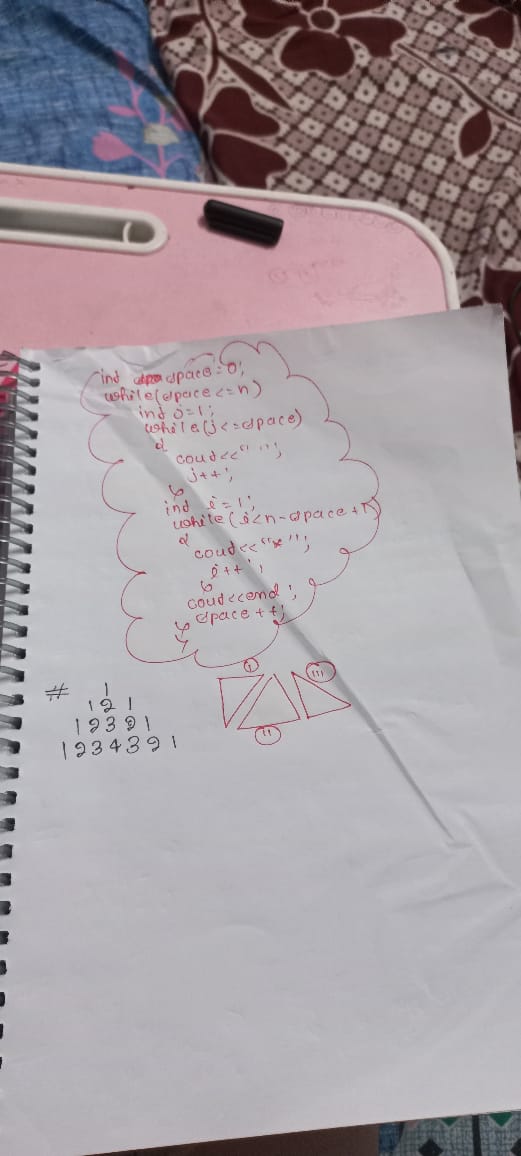 int space=0;
while(space<=n)
int j=1;
while(j<=space)
{
cout<<" ";
j++;
}
int i=1;
while(i<n-space+1)
{
cout<<"*";
i++;
}
cout<<end;
space++;
}
# 1
1 2 1
1 2 3 2 1
1 2 3 4 3 2 1
I
III
II